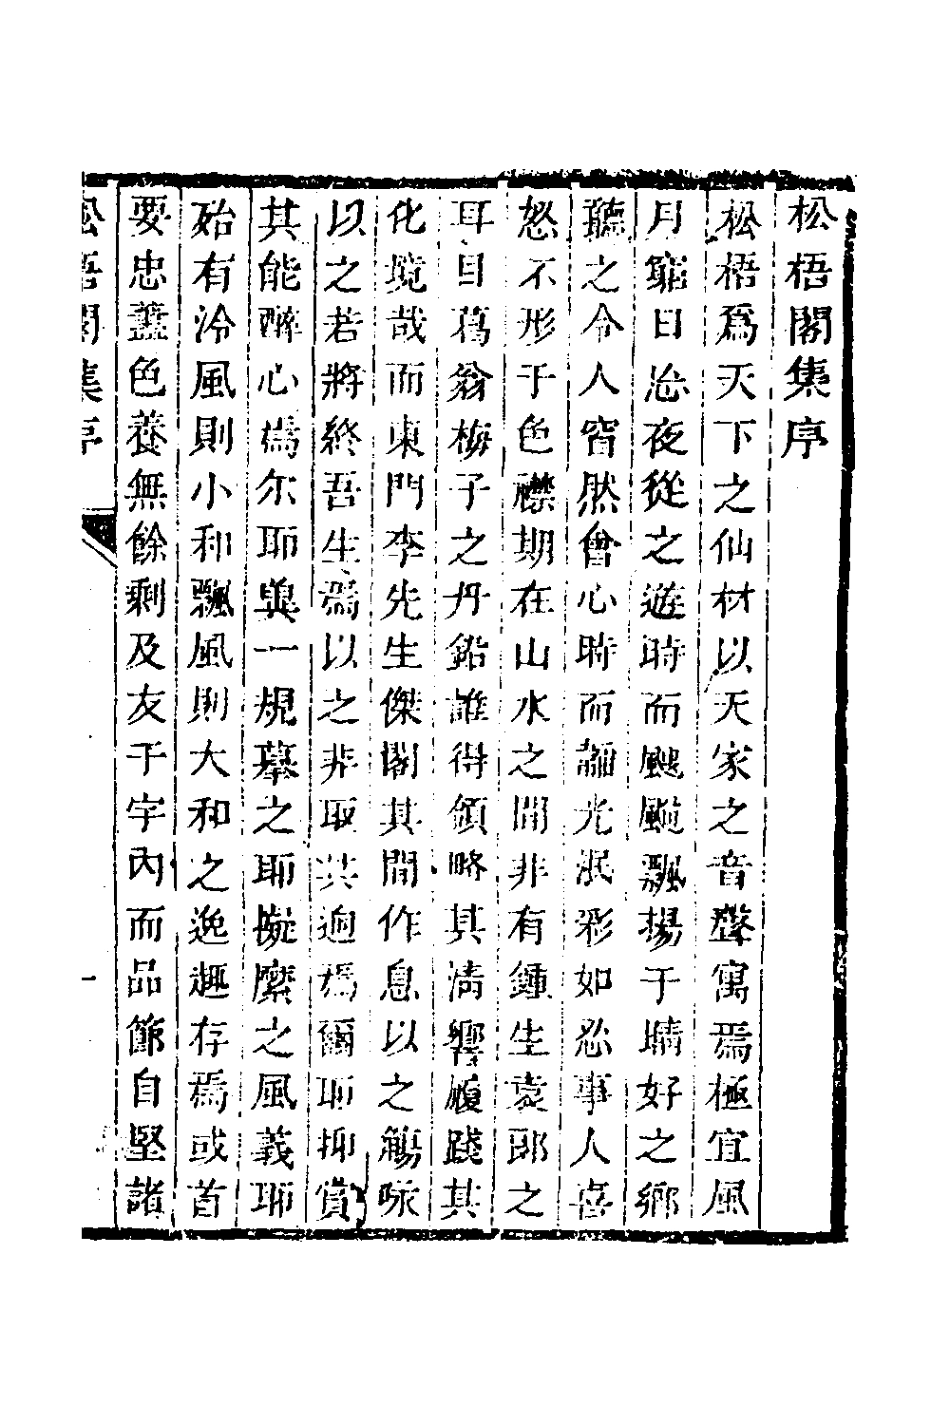 松梧閣集序
松梧爲天下之仙材以天家之音聲寓焉極宜風
月窮日冶夜從之遊時而颼颼飄揚于晴好之鄉
聽之令人窅然會心時而韜光泯彩如忿事人喜
怒不形于色襟期在山水之間非有鍾生袁郎之
耳目葛翁梅子之丹鉛誰得領略其淸響履踐其
化境哉而東門李先生傑閣其間作息以之觴咏
以之若將終吾生焉以之非取其逈焉爾耶抑賞
其能醉心焉尔耶與一規摹之耶擬縻之風義耶
殆有泠風則小和飄風則大和之逸趣存焉或首
要忠藎色養無餘剩及友于宇內而品節自堅諸
松梧閣集序
一